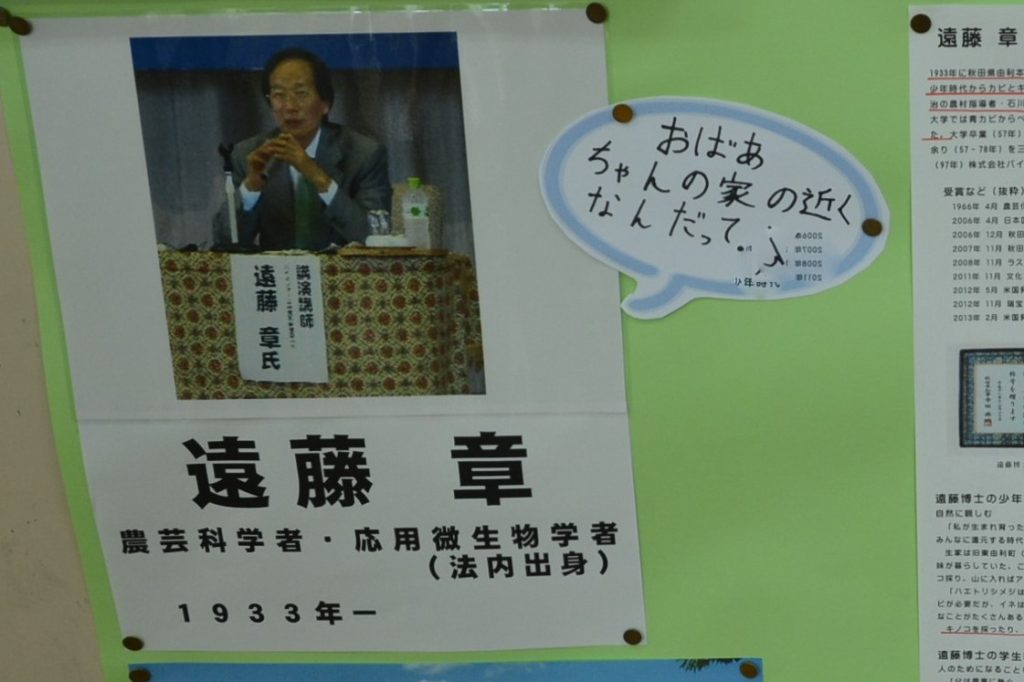 講演講師
遠藤 章氏
遠藤 章
農芸科学者・応用微生物学者
(法内出身)
1933年ー
おばあ
ちゃんの家の近く
なんだって。
2006年
2007年
2008年
2011年
少年時代
遠藤 章
1933年に秋田県由利本
少年時代からカビとキ
治の農村指導者・石川
大学では青カビからペ
た。大学卒業(57年)
余り(57-78年)を三
(97年)株式会社バイ
受賞など(抜粋)
1966年 4月 農芸
2006年 4月 日本
2006年 12月 秋田
2007年 11月 秋田
2008年 11月 ラス
2011年 11月 文化
2012年 5月 米国
2012年 11月 瑞宝
2013年 2月 米国
遠藤博士の少年
自然に親しむ
「私が生まれ育った
みんなに還元する時代
生家は旧東由利町(
妹が暮らしていた。こ
コ採り、山に入ればア
「ハエトリシメジは
ビが必要だが、イネは
なことがたくさんある
キノコを採ったり、
遠藤博士の学生
人のためになること